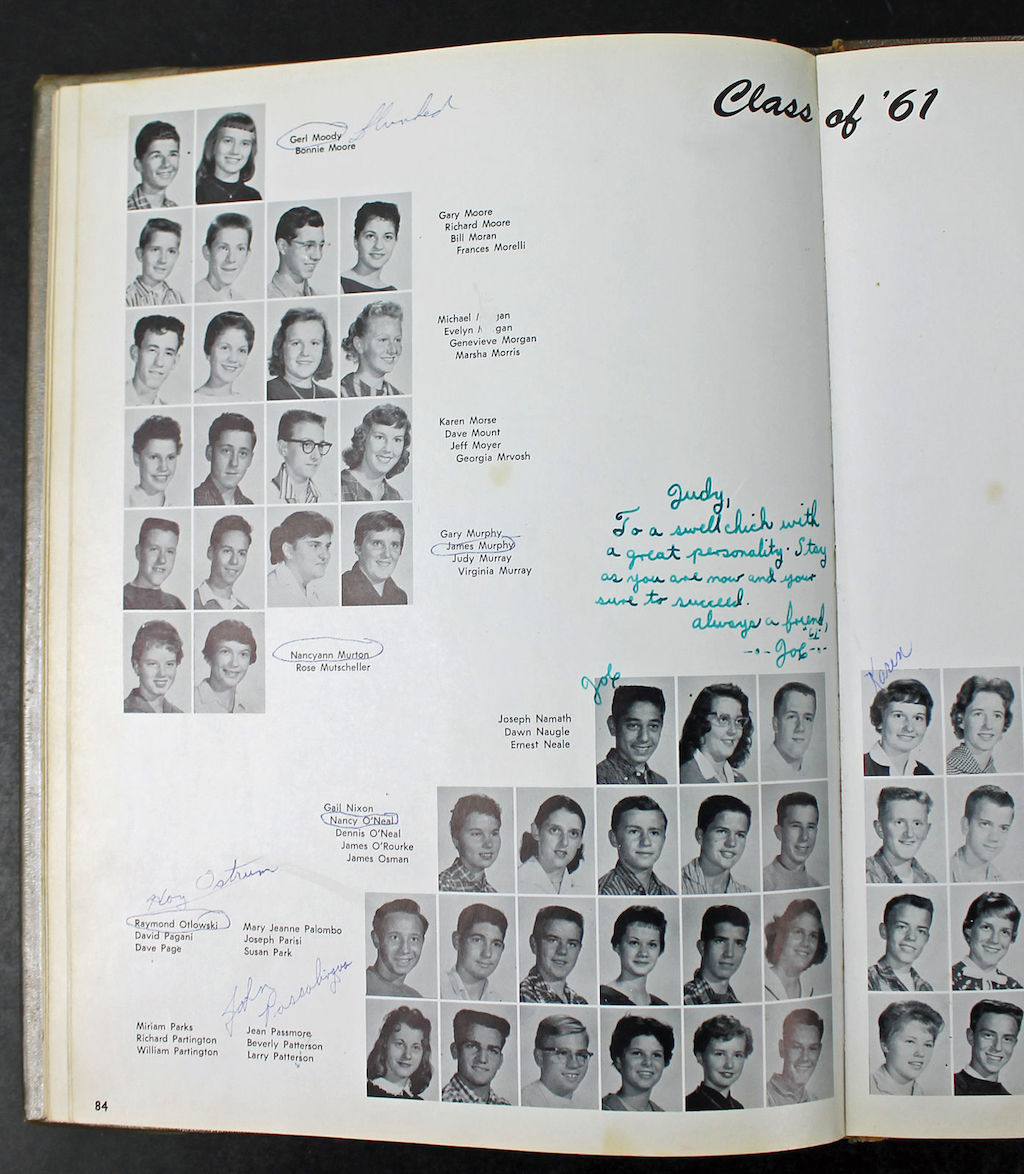 Class of '61
Gerl Moody
Bonnie Moore
Gary Moore
Richard Moore
Bill Moran
Frances Morelli
Michael
Evelyn
Genevieve Morgan
Marsha Morris
Karen Morse
Dave Mount
Jeff Moyer
Georgia Mrvosh
Gary Murphy
James Murphy
Judy Murray
Virginia Murray
Nancyann Murton
Rose Mutscheller
Judy,
To a swell chick with
a great personality. Stay
as you are now and your
sure to succeed.
always a friend,
"61"
Joe
Joe
Karen
Joseph Namath
Dawn Naugle
Ernest Neale
Gail Nixon
Nancy O'Neal
Dennis O'Neal
James O'Rourke
James Osman
Ostrum
Raymond Otlowski
David Pagani
Dave Page
Mary Jeanne Palombo
Joseph Parisi
Susan Park
John
Miriam Parks
Richard Partington
William Partington
Jean Passmore
Beverly Patterson
Larry Patterson
84